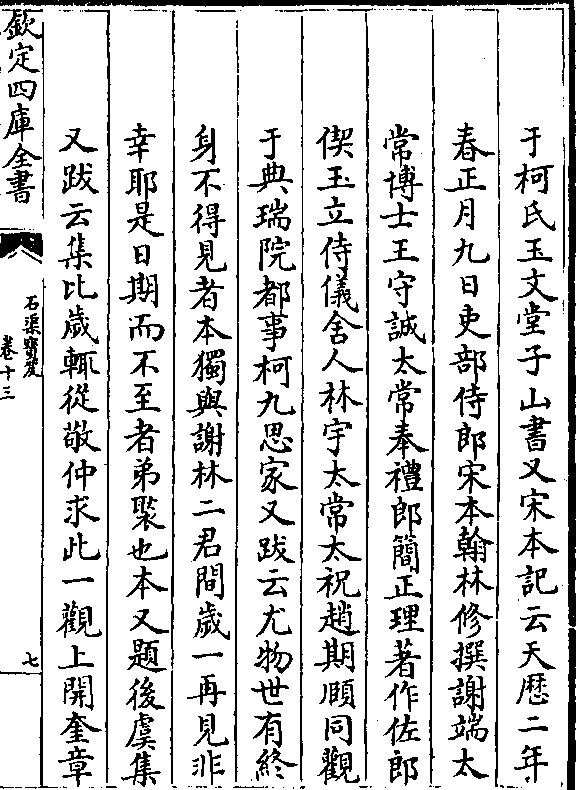 于柯氏玉文堂子山書又宋本記云天歷二年
春正月九日吏部侍郎宋本翰林修撰謝端太
常博士王守誠太常奉禮郎簡正理著作佐郎
偰玉立侍儀舍人林宇太常太祝趙期頤同觀
于典瑞院都事柯九思家又跋云尤物世有終
身不得見者本獨與謝林二君間歲一再見非
幸耶是日期而不至者弟褧也本又題後虞集
又跋云集比歲輒從敬仲求此一觀上開奎章
欽定四庫全書
石渠寶笈
卷十三
七